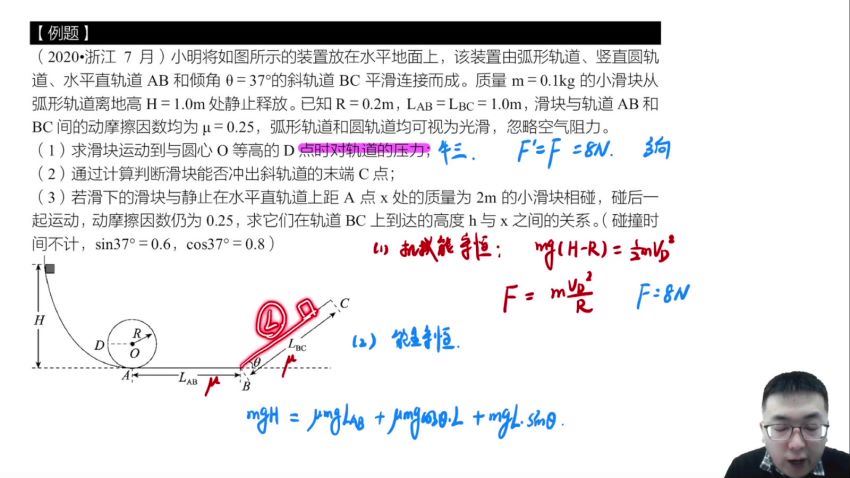 【例题】
（2020•浙江 7 月）小明将如图所示的装置放在水平地面上，该装置由弧形轨道、竖直圆轨
道、水平直轨道 AB 和倾角 θ＝37°的斜轨道 BC 平滑连接而成。质量 m＝0.1kg 的小滑块从
弧形轨道离地高 H＝1.0m 处静止释放。已知 R＝0.2m，LAB＝LBC＝1.0m，滑块与轨道 AB 和
BC 间的动摩擦因数均为 μ＝0.25，弧形轨道和圆轨道均可视为光滑，忽略空气阻力。
（1）求滑块运动到与圆心 O 等高的 D 点时对轨道的压力； 牛三. F'=F =8N. 方向
（2）通过计算判断滑块能否冲出斜轨道的末端 C 点；
（3）若滑下的滑块与静止在水平直轨道上距 A 点 x 处的质量为 2m 的小滑块相碰，碰后一
起运动，动摩擦因数仍为 0.25，求它们在轨道 BC 上到达的高度 h 与 x 之间的关系。（碰撞时
间不计，sin37°＝0.6，cos37°＝0.8）
(1) 机械能守恒: mg(H-R) = ½mVD²
F = m VD²/R F=8N
H
D
R
O
A
LAB
μ
B
θ
L
LBC
μ
C
(2) 能量守恒.
mgH = μmgLAB + μmgcosθ·L + mgL·sinθ.